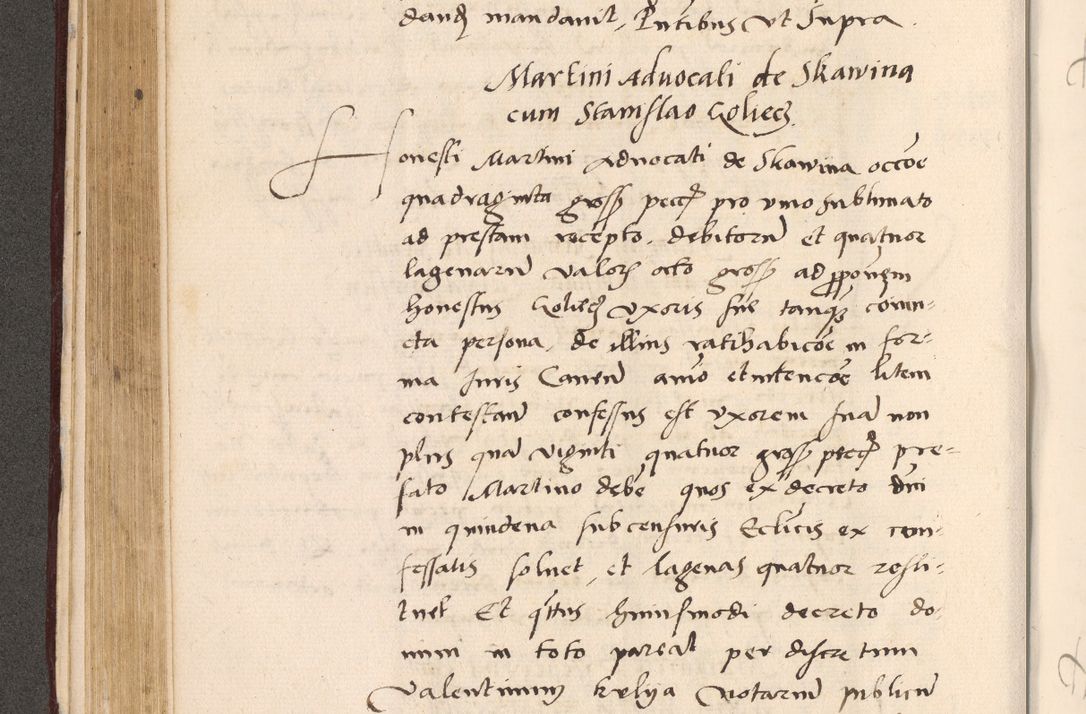 dand mandavit, Pntibus vt Supra.
Martini Advocati de Skawina
cum Stanislao Goliecz
Honesti Martini Advocati de Skawina occoe
quadraginta gross pecc pro vino sublimato
ad prestam recepto, debitoru et quatuor
lagenaru valoris octo gross ad pponem
honestus Goliecz vxoris sue tanq coniu-
cta persona, de illius ratihabicoe in for-
ma Juris Canen aio et intencoe litem
contestan confessus est vxorem sua non
plus qua viginti quatuor gross pecc pre-
fato Martino debe quos ex decreto dni
in quindena sub censuris Eclicis ex con-
fessatis soluet, et lagenas quatuor resti-
tuet Et qttus huiusmodi decreto do-
mini in toto pareat per discretum
Valentinum Kelija Notariu publicu